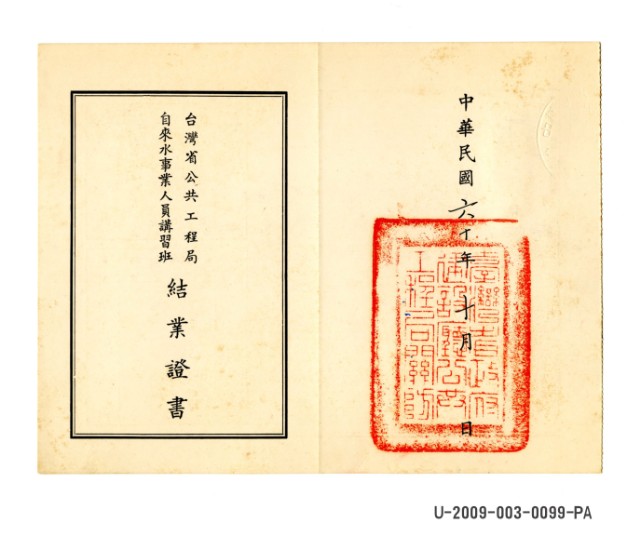 中華民國六十年十月 日
臺灣省政府
建設廳公共
工程局關防
台灣省公共工程局
自來水事業人員講習班
結業證書
U-2009-003-0099-PA